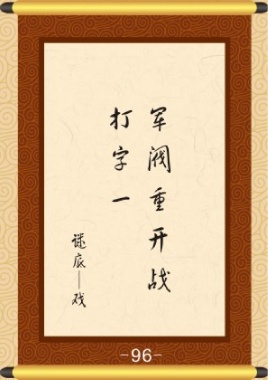 军阀重开战
打字一
谜底——戏
-96-